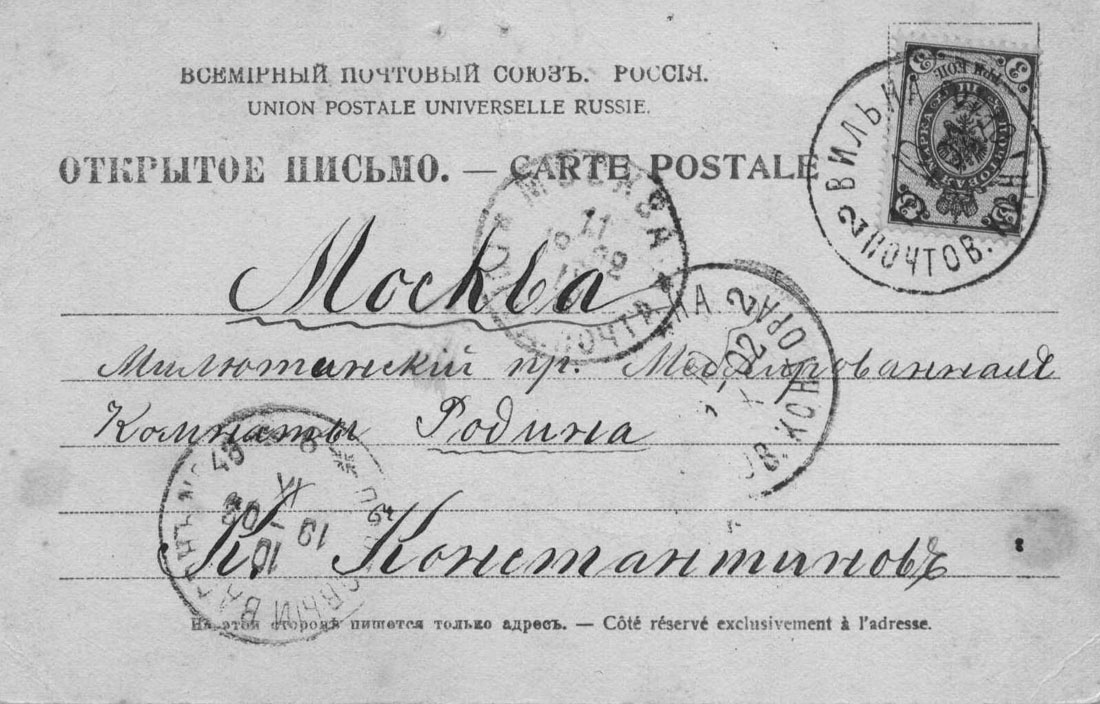 ВСЕМІРНЫЙ ПОЧТОВЫЙ СОЮЗЪ. РОССІЯ.
UNION POSTALE UNIVERSELLE RUSSIE.
ОТКРЫТОЕ ПИСЬМО. — CARTE POSTALE
ВИЛЬНА
ПОЧТОВ.
2
МОСКВА
11
ПОЧТА
Москва
КОНТОРА 2
02
X
Милютинский пр. Меблированная
Комнаты Родина
19
IX
10
ВАГОНЪ
К. Константиновъ
На этой сторонѣ пишется только адресъ. — Côté réservé exclusivement à l'adresse.